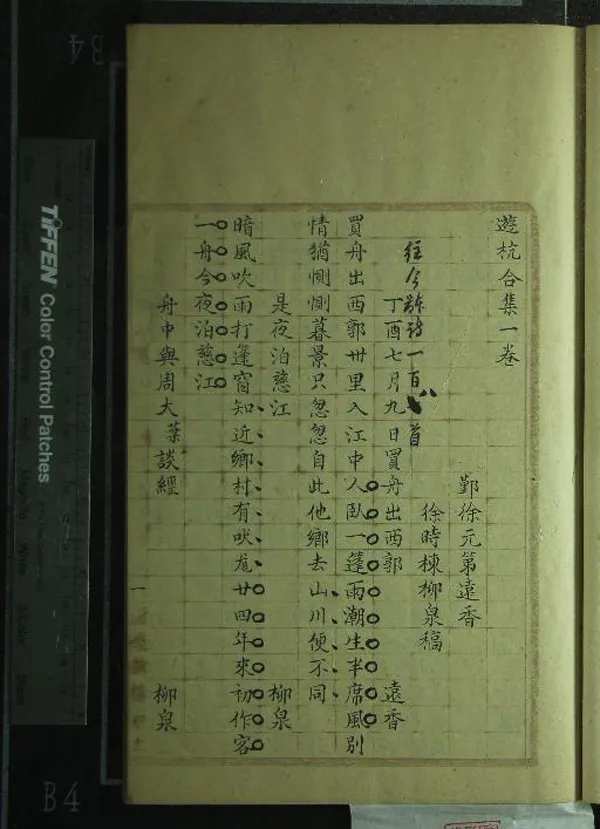 遊杭合集一卷
鄞徐元第遠香
徐時棟柳泉稿
往今縣詩一百八首
丁酉七月九日買舟出西郭 遠香
買舟出西郭卅里入江中人臥一篷雨潮生半席風別
情猶惻惻暮景只怱怱自此他鄉去山川便不同
是夜泊慈江 柳泉
暗風吹雨打篷窗知近鄉村有吠尨廿四年來初作客
一舟今夜泊慈江
舟中與周大葉談經 柳泉
一
TIFFEN Color Control Patches
B4
B4